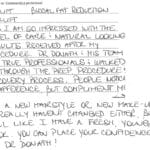 LIFT BUCCAL FAT REDUCTION
LIFT
I AM SO IMPRESSED WITH THE
OF CARE: NATURAL LOOKING
RESULTS RECEIVED AFTER MY
PROCEDURE. DR DONATH & HIS TEAM
TRUE PROFESSIONALS: WALKED
THROUGH THE PREP, PROCEDURE &
RECOVERY PROCESS. PEOPLE NOTICE
DIFFERENCE, BUT COMPLIMENT ME
A NEW HAIRSTYLE OR NEW MAKE-UP
REALLY HAVEN'T CHANGED EITHER. I
LL LIKE I HAVE A FRESH, YOUNGER
YOU CAN PLACE YOUR CONFIDENCE
DR. DONATH!